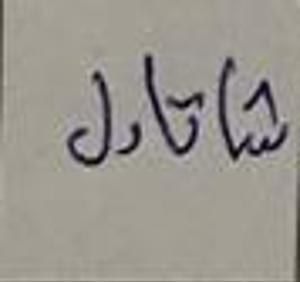 شاتارل